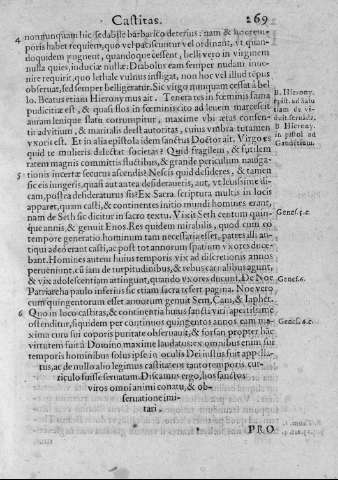 Castitas. 269
4 nonnunquam hic sedabile barbarico deterius: nam & hoc tem-
poris habet requiem, quo vel pascuntur vel ordinant, vt quan-
doquidem pugnent, quandoque cessent, belli vero in virginem
nulla quies, induciæ nullæ: Diabolus eam semper nudam inue-
nire requirit, quo lethale vulnus infligat, non hoc vel illud tẽpus
obseruat, sed semper belligeratur. Sic virgo nunquam cessat à bel-
lo. Beatus etiam Hieronymus ait. Tenera res in fœminis fama
pudicitiæ est, & quasi flos in fœminis cito ad leuem marcescit
auram leuique flatu corrumpitur, maxime vbi ætas consen-
tit ad vitium, & maritalis deest autoritas, cuius vmbra tutamen
vxoris est. Et in alia epistola idem sanctus Doctor ait. Virgo es
quid te mulieris delectat societas? Quid fragilem, & sutilem
ratem magnis committis fluctibus, & grande periculum nauiga-
5 tionis incertæ securus ascendis? Nescis quid desideres, & tamen
sic eis iungeris, quasi aut antea desideraueris, aut, vt leuissime di-
cam, postea desideraturus sis? Ex Sacra scriptura multis in locis
apparet, quam casti, & continentes initio mundi homines erant,
nam de Seth sic dicitur in sacro textu. Vixit Seth centum quin-
que annis, & genuit Enos. Res quidem mirabilis, quod cum eo
tempore generatio hominum tam necessaria esset, patres illi an-
tiqui adeo erant casti, ac post tot annorum spatium vxores duce-
bant. Homines autem huius temporis vix ad discretionis annos
perueniunt, cũ iam de turpitudinibus, & rebus carnalibus agunt,
& vix adolescentiam attingunt, quando vxores ducunt. De Noe
Patriarcha paulo inferius sic etiam sacra refert pagina. Noe vero
cum quingentorum esset annorum genuit Sem, Cam, & Iaphet.
6 Quo in loco castitas, & continentia huius sancti viri apertissime
ostenditur, siquidem per continuos quingentos annos cum ma-
xima cura sui corporis puritate obseruauit, & forsan propter hãc
virtutem fuit à Domino maxime laudatus: ex omnibus enim sui
temporis hominibus solus ipse in oculis Dei iustus fuit appella-
tus, ac de nullo alio legimus castitatem tanto temporis cur-
riculo fuisse seruatam. Discamus ergo, hos sanctos
viros omni animi conatu, & ob-
seruatione imi-
tari.
B. Hierony.
Epist. ad Salu
tiam de vi-
duit. seruãda.
B. Hierony.
in epist. ad
Genes. 5. a.
Genes. 6.
PRO